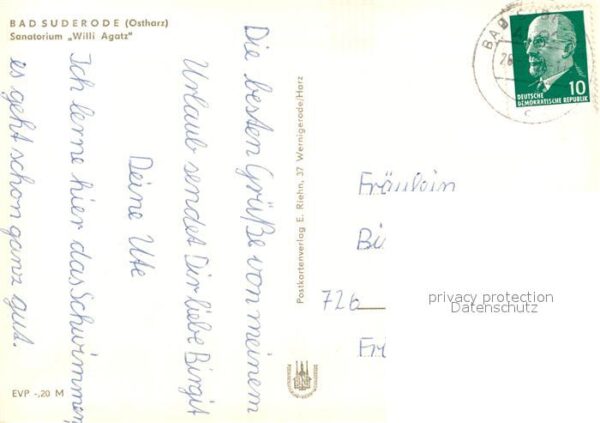 BAD SUDERODE (Ostharz)
Sanatorium „Willi Agatz"
Die besten Grüße von meinem
Urlaub sendet Dir liebe Birgit
Deine Ute
Ich lerne hier das Schwimmen,
es geht schon ganz gut.
EVP -,20 M
Postkartenverlag E. Riehn, 37 Wernigerode/Harz
BAD
10
DEUTSCHE
DEMOKRATISCHE REPUBLIK
Fräulein
Bi
726
Fr
privacy protection
Datenschutz